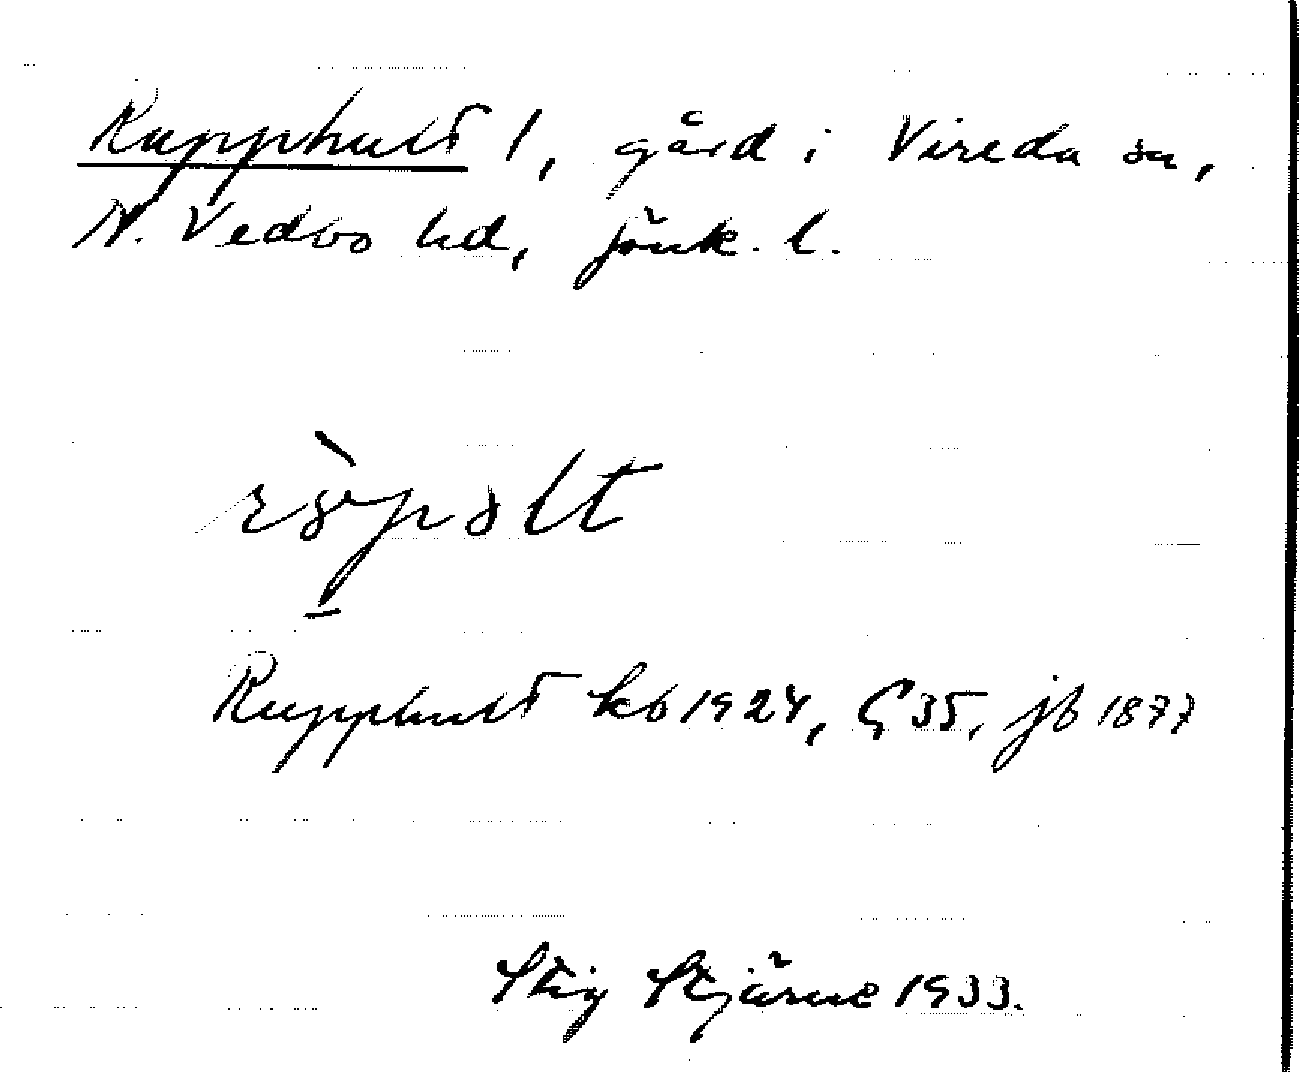 Rupphult 1, gård i Vireda sn,
N. Vedbo hd, Jönk. l.
Rupphult kb 1924, G 35, jb 1877
Stig Stjärne 1933.